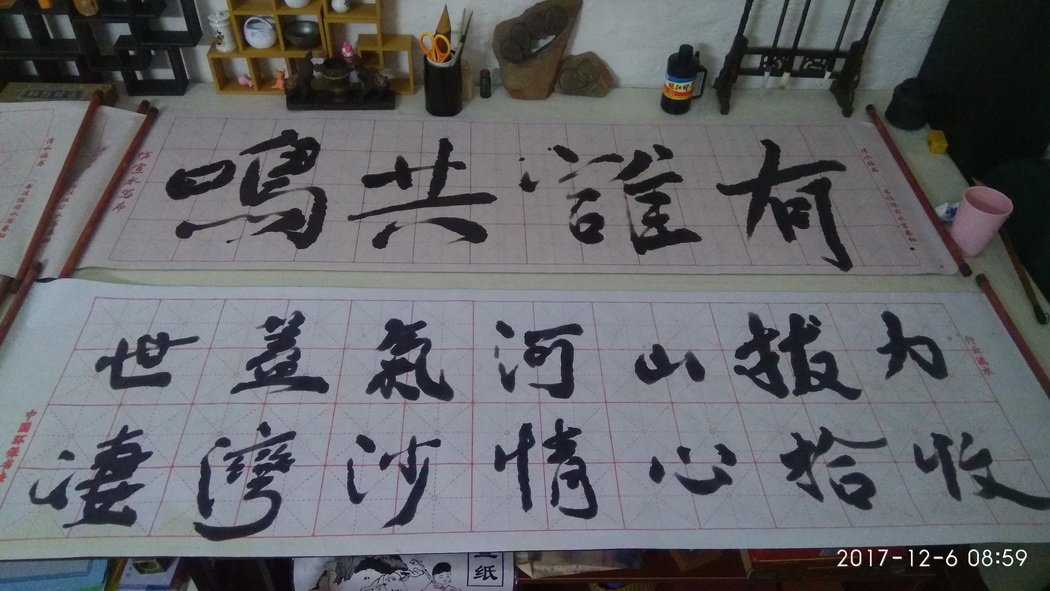 有誰共鳴
力拔山河氣蓋世
收拾心情沙灣淒
纸
2017-12-6 08:59